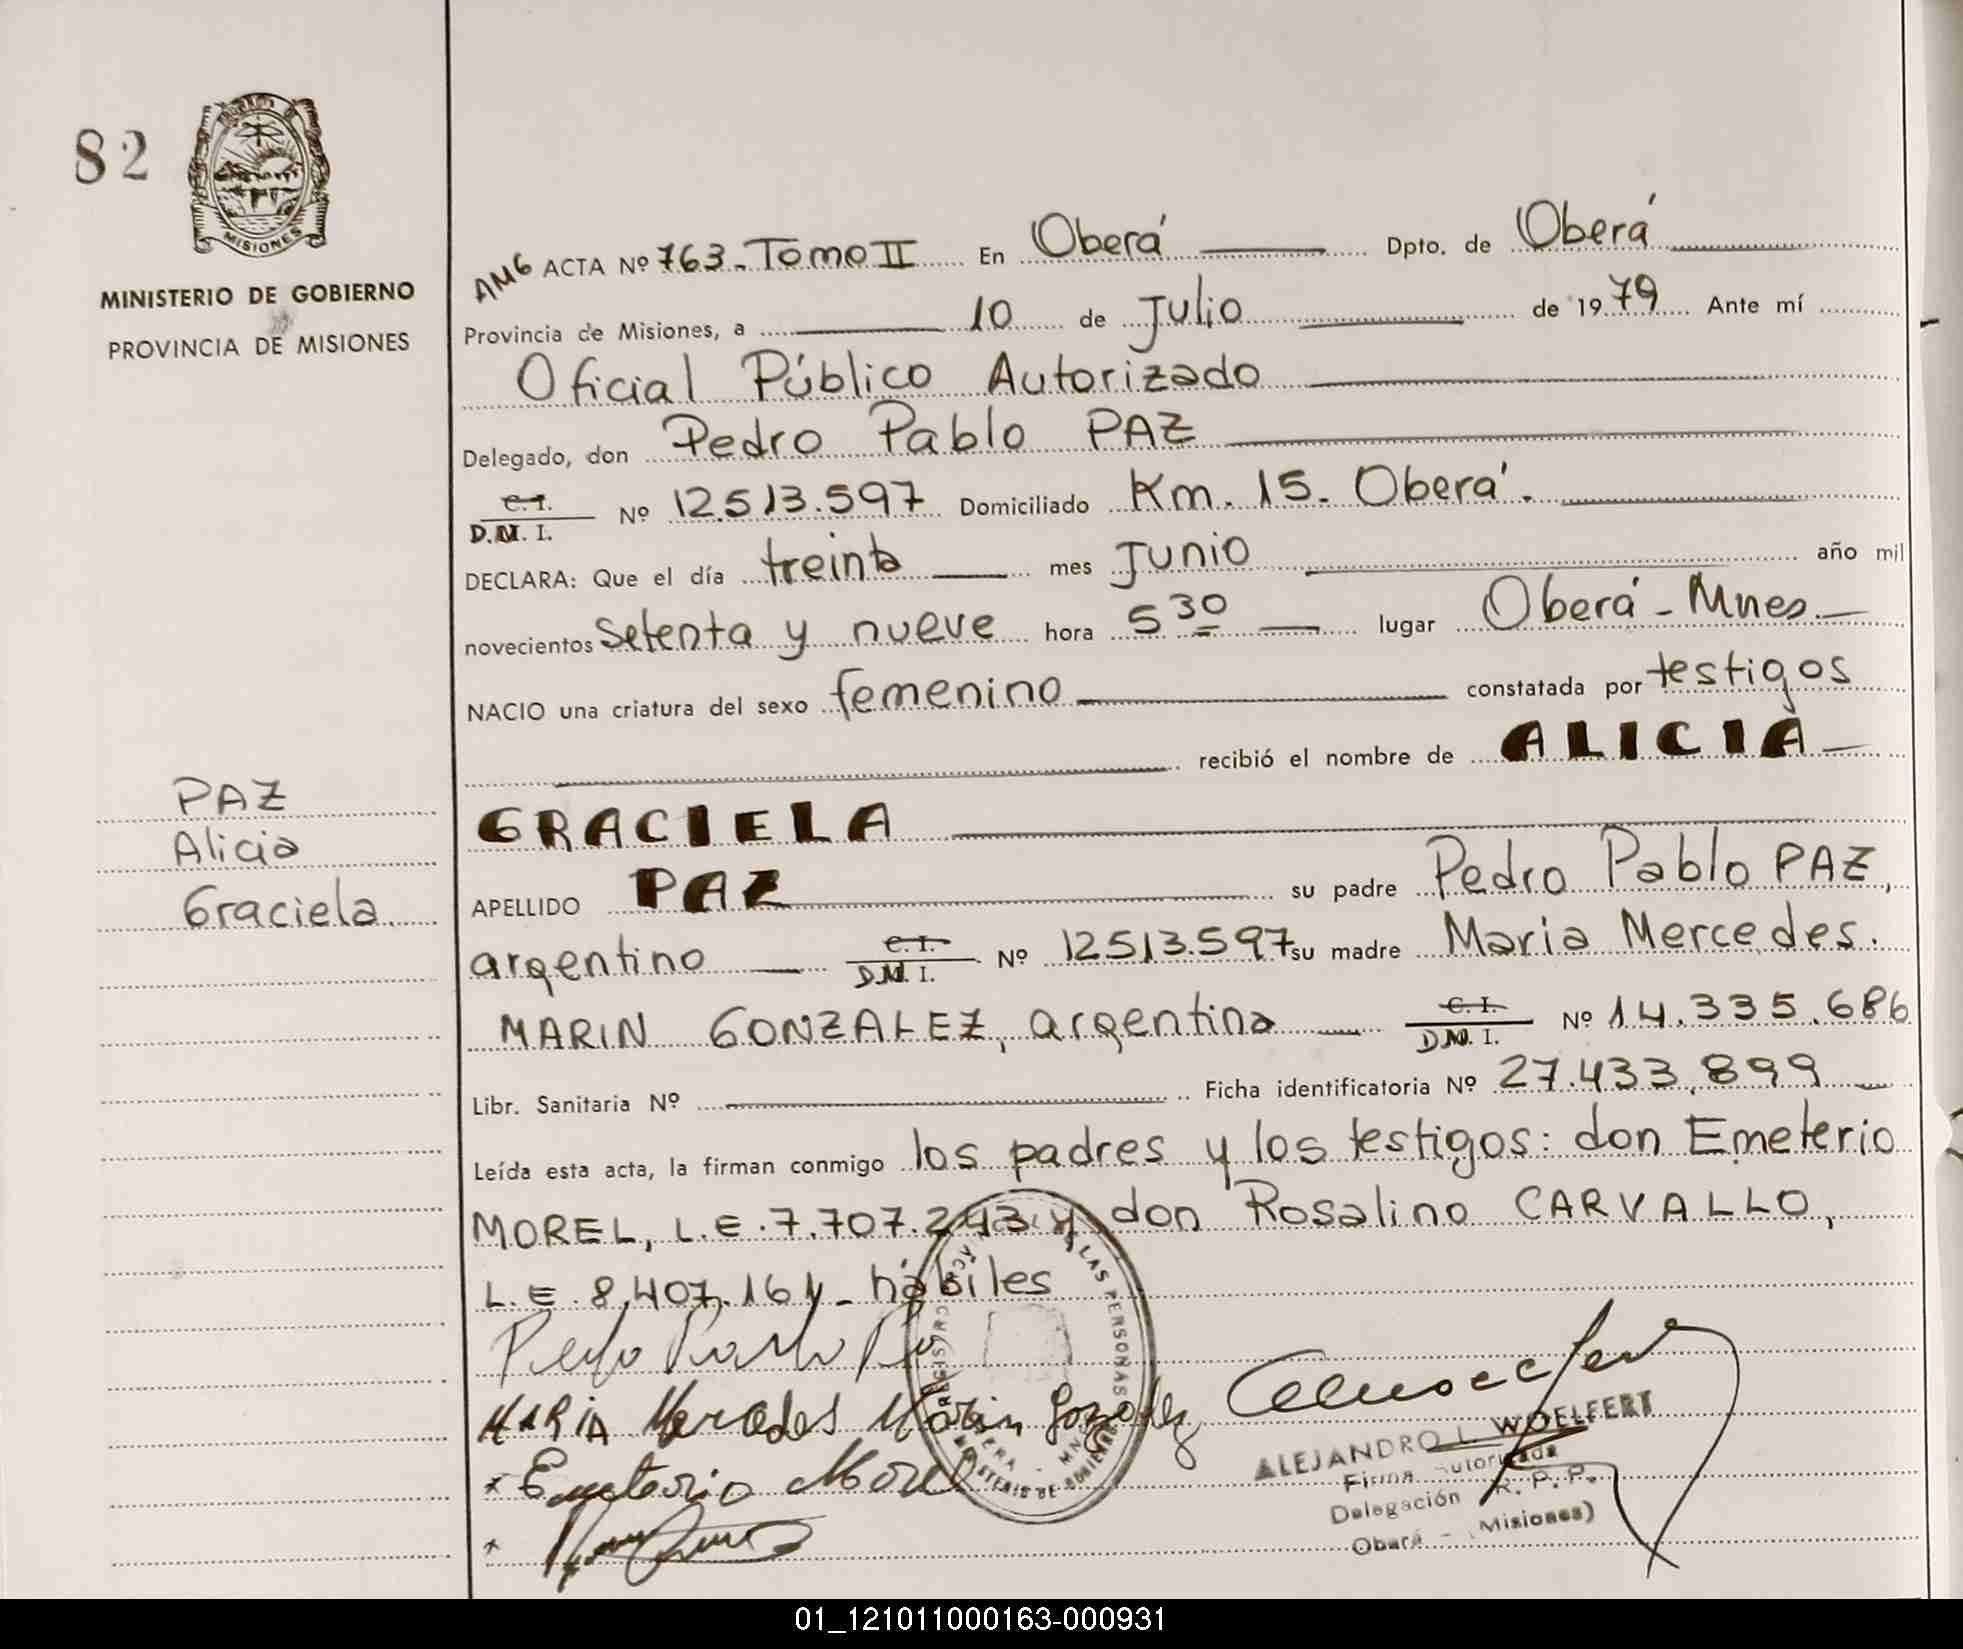 82
MISIONES
MINISTERIO DE GOBIERNO
PROVINCIA DE MISIONES
PAZ
Alicia
Graciela
AMG ACTA Nº 763. Tomo II En Oberá Dpto. de Oberá
Provincia de Misiones, a 10 de Julio de 1979 Ante mí
Oficial Público Autorizado
Delegado, don Pedro Pablo PAZ
C.I. D.M.I. Nº 12.513.597 Domiciliado Km. 15. Oberá.
DECLARA: Que el día treinta mes Junio año mil
novecientos setenta y nueve hora 5 30 lugar Oberá - Mnes.
NACIO una criatura del sexo femenino constatada por testigos
recibió el nombre de ALICIA
GRACIELA
APELLIDO PAZ su padre Pedro Pablo PAZ,
argentino C.I. D.M.I. Nº 12.513.597 su madre Maria Mercedes.
MARIN GONZALEZ, argentina C.I. D.M.I. Nº 14.335.686
Libr. Sanitaria Nº Ficha identificatoria Nº 27.433.899
Leída esta acta, la firman conmigo los padres y los testigos: don Emeterio
MOREL, L.E. 7.707.243 y don Rosalino CARVALLO,
L.E. 8.407.164 - hábiles
Pedro Pablo Paz
MARIA Mercedes Marin Gonzalez
x Emeterio Morel
x
LAS PERSONAS
ALEJANDRO L. WOELFERT
Firma autorizada
Delegación R. P. P.
Oberá - Misiones)
01_121011000163-000931